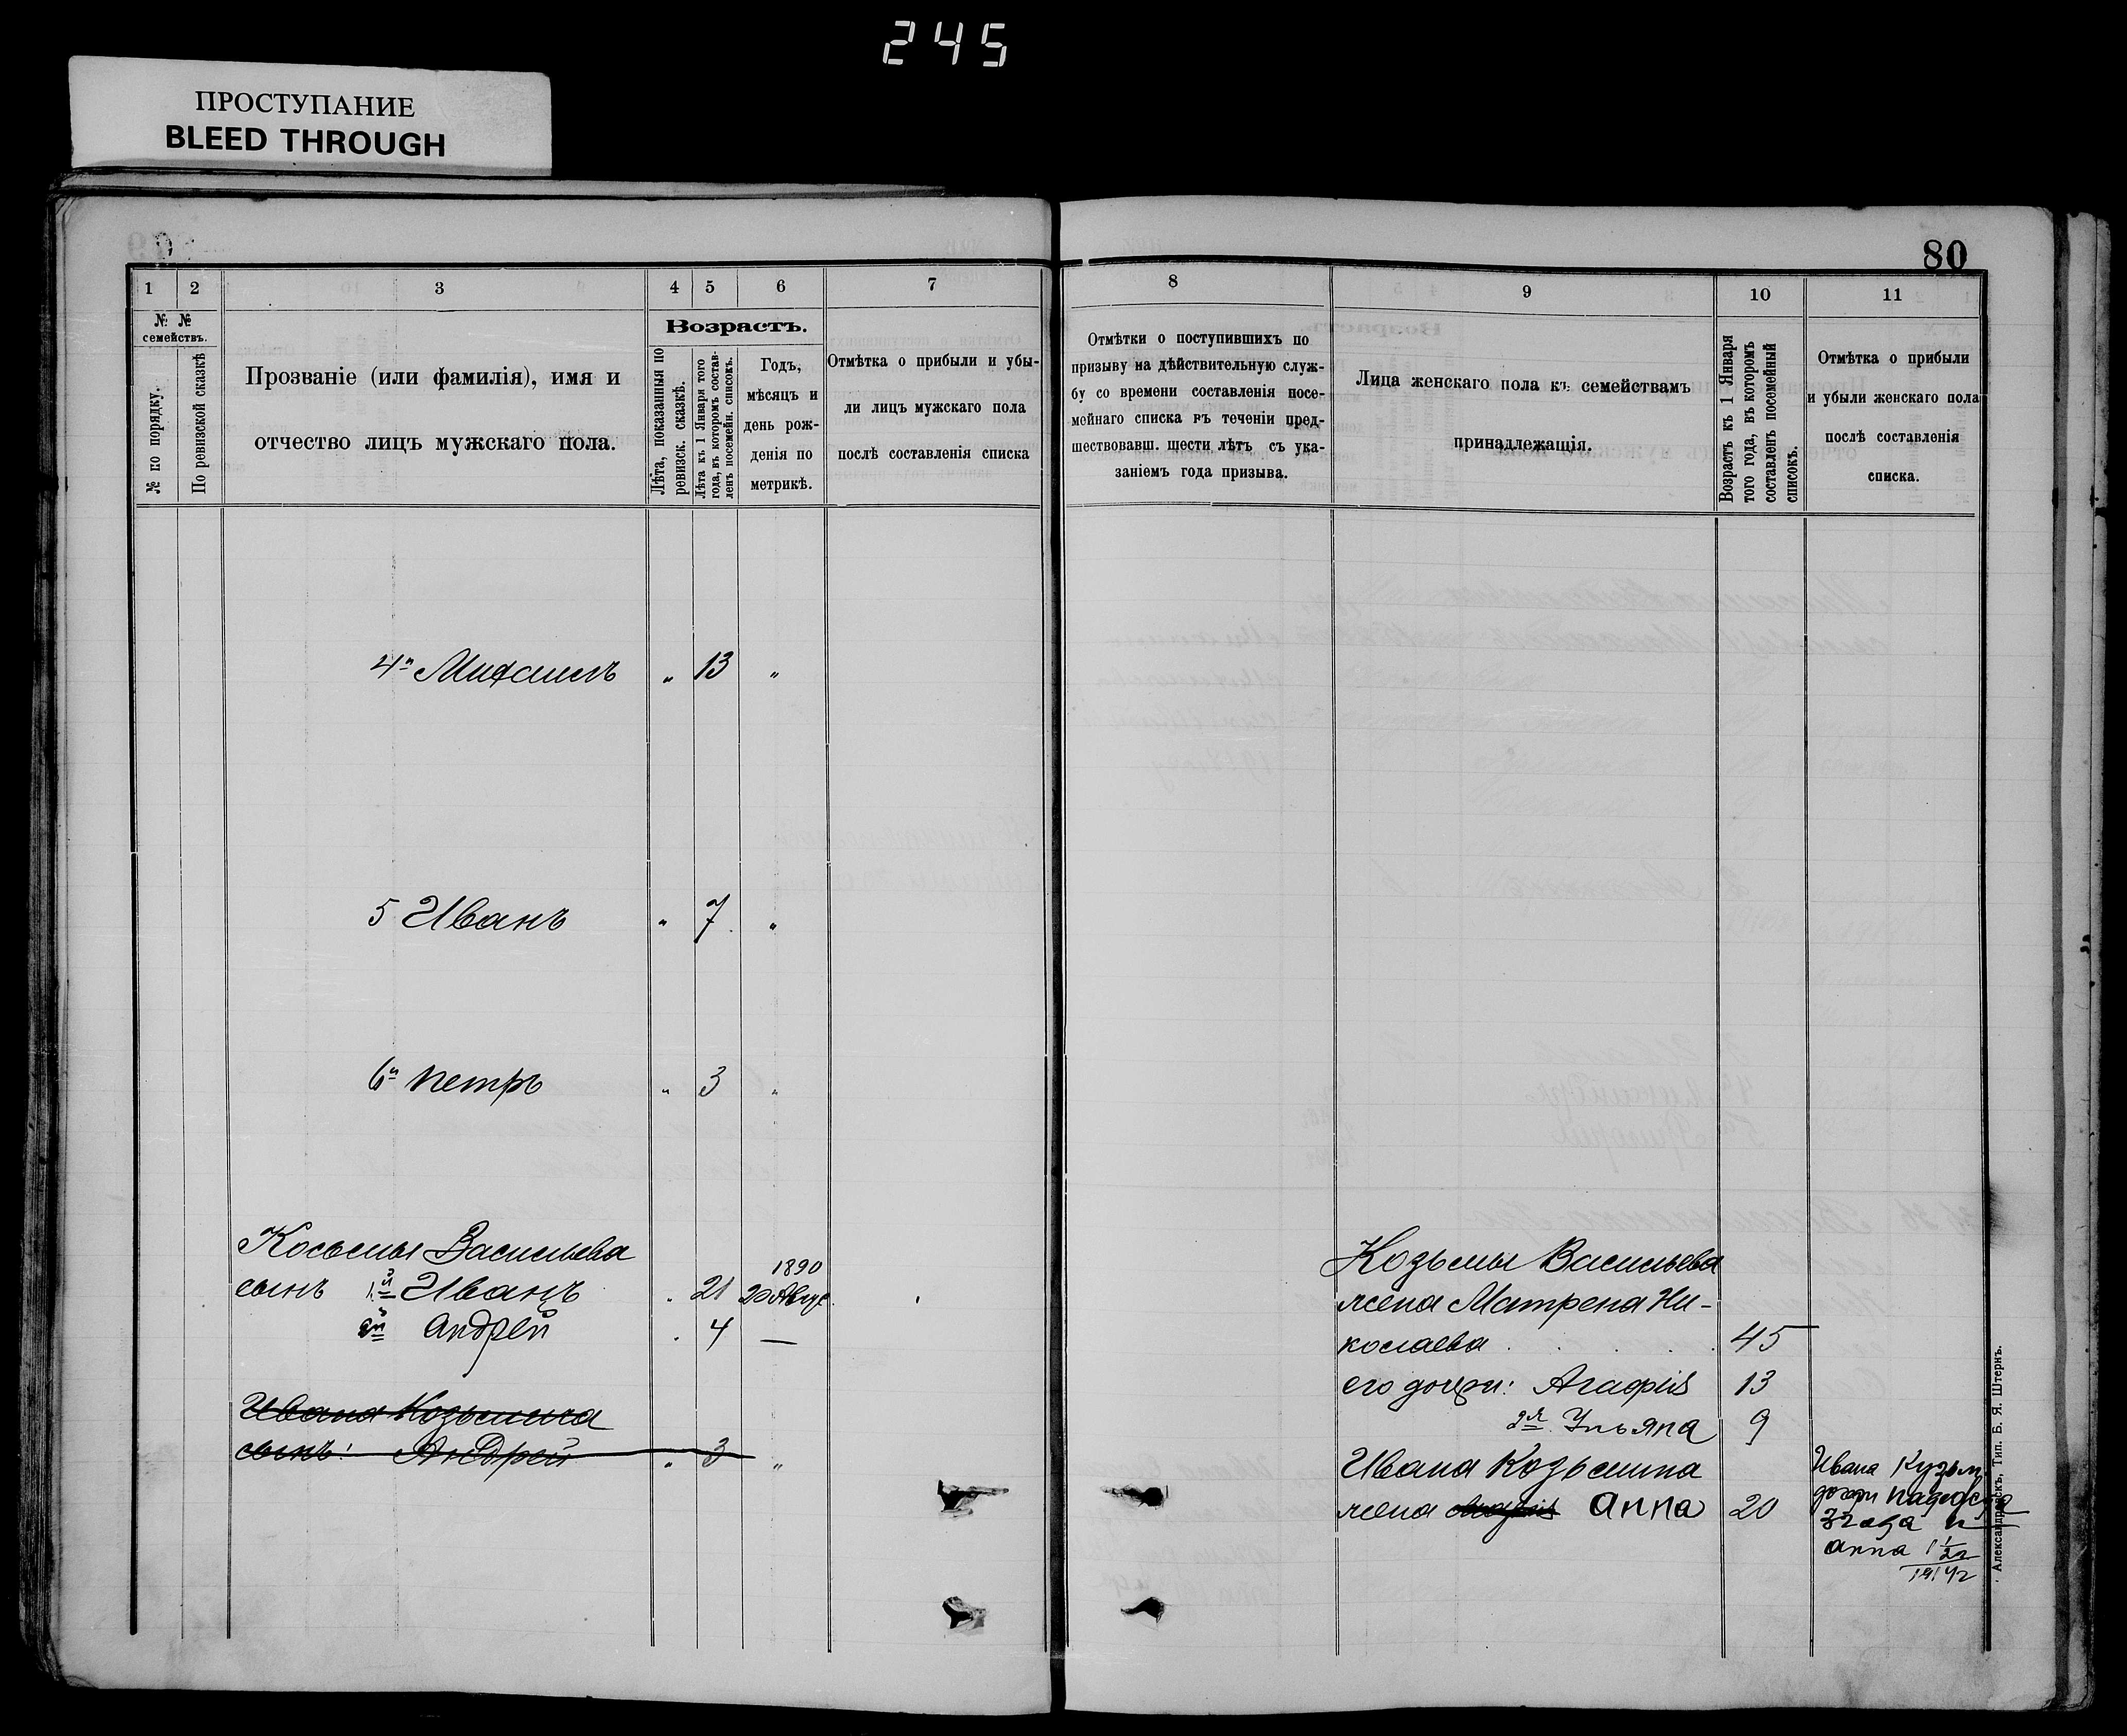 245
ПРОСТУПАНИЕ
BLEED THROUGH
80
1 2 3 4 5 6 7
№ № семействъ.
№ по порядку.
По ревизской сказкѣ
Прозваніе (или фамилія), имя и
отчество лицъ мужскаго пола.
Возрастъ.
Лѣта, показанныя по
ревизск. сказкѣ.
Лѣта къ 1 Января того
года, въ которомъ состав-
ленъ посемейн. списокъ.
Годъ,
мѣсяцъ и
день рож-
денія по
метрикѣ.
Отмѣтка о прибыли и убы-
ли лицъ мужскаго пола
послѣ составленія списка
4й Михаилъ „ 13 „
5 Иванъ „ 7 „
6й Петръ „ 3 „
Косьмы Васильева
1890
сынъ 1й Иванъ „ 21 20 Авгус
2й Андрей „ 4 —
Ивана Козьмина
сынъ: Андрей „ 3 „
8 9 10 11
Отмѣтки о поступившихъ по
призыву на дѣйствительную служ-
бу со времени составленія посе-
мейнаго списка въ теченіи пред-
шествовавш. шести лѣтъ съ ука-
заніемъ года призыва.
Лица женскаго пола къ семействамъ
принадлежащія.
Возрастъ къ 1 Января
того года, въ которомъ
составленъ посемейный
списокъ.
Отмѣтка о прибыли
и убыли женскаго пола
послѣ составленія
списка.
Козьмы Васильева
жена Матрена Ни-
колаева 45
его дочери: Агафія 13
2я Ульяна 9
Ивана Козьмина
жена Анна 20
Ивана Кузьм
дочери Надежда
3 года и
Анна 1 1/2 г
1914 г
Александровскъ, Тип. Б. Я. Штернъ.